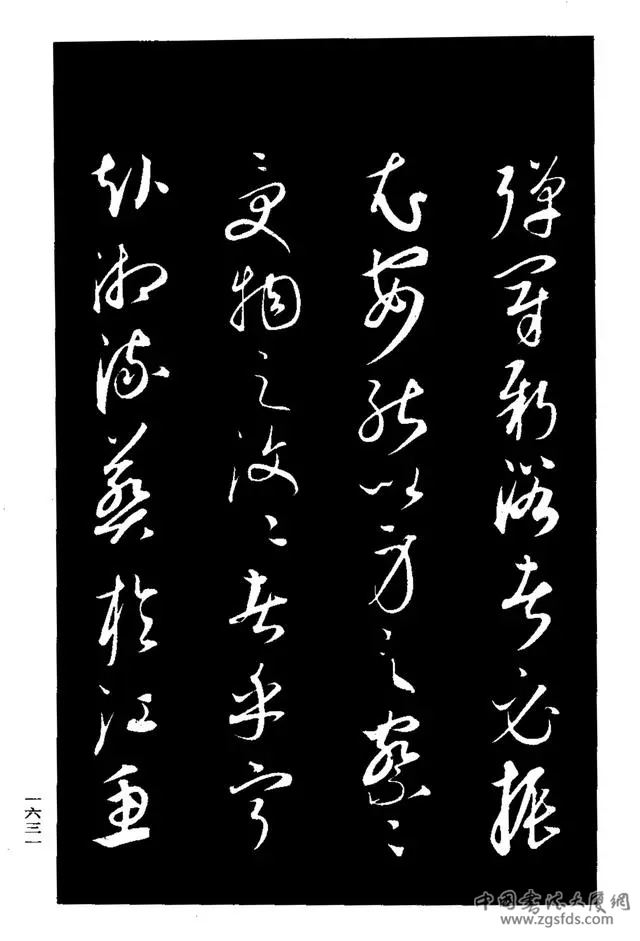 彈冠新浴者必振
衣安能以身之察〻
受物之汶〻者乎寧
赴湘流葬於江魚
一六三一
中国书法大厦網
www.zgsfds.com